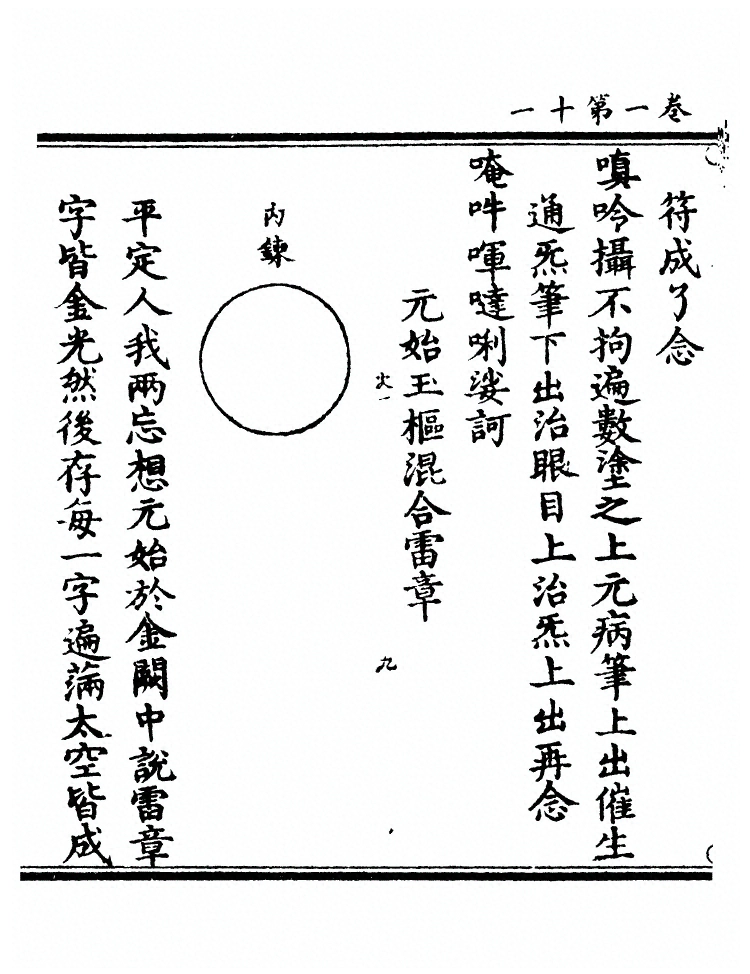 卷一第十一
符成了念
嗔唥攝不拘遍數塗之上元病筆上出催生
通炁筆下出治眼目上治炁上出再念
唵吽喗噠唎娑訶
元始玉樞混合雷章
火一
九
内鍊
平定人我兩忘想元始於金闕中說雷章
字皆金光然後存每一字遍滿太空皆成